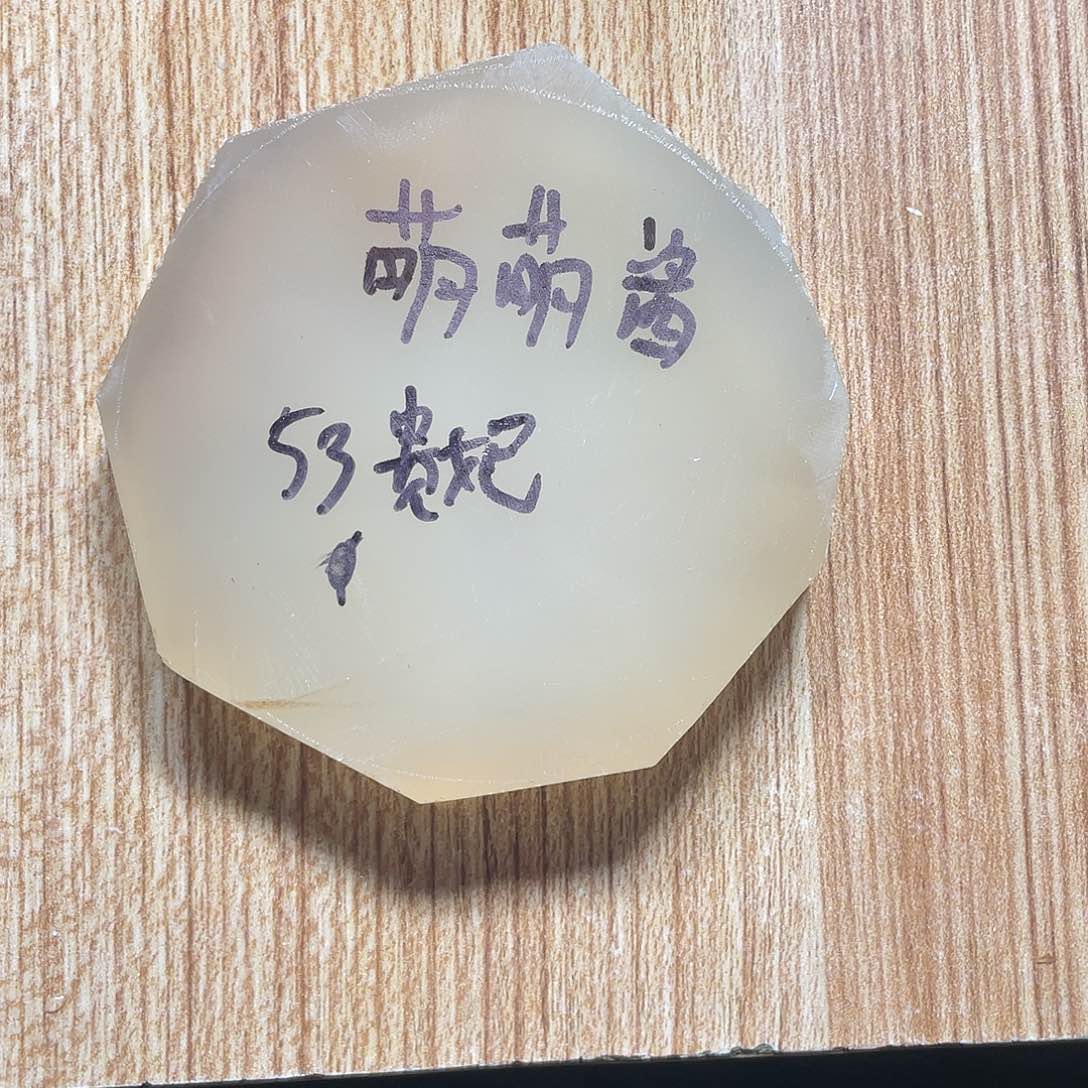 萌萌酱
53贵妃